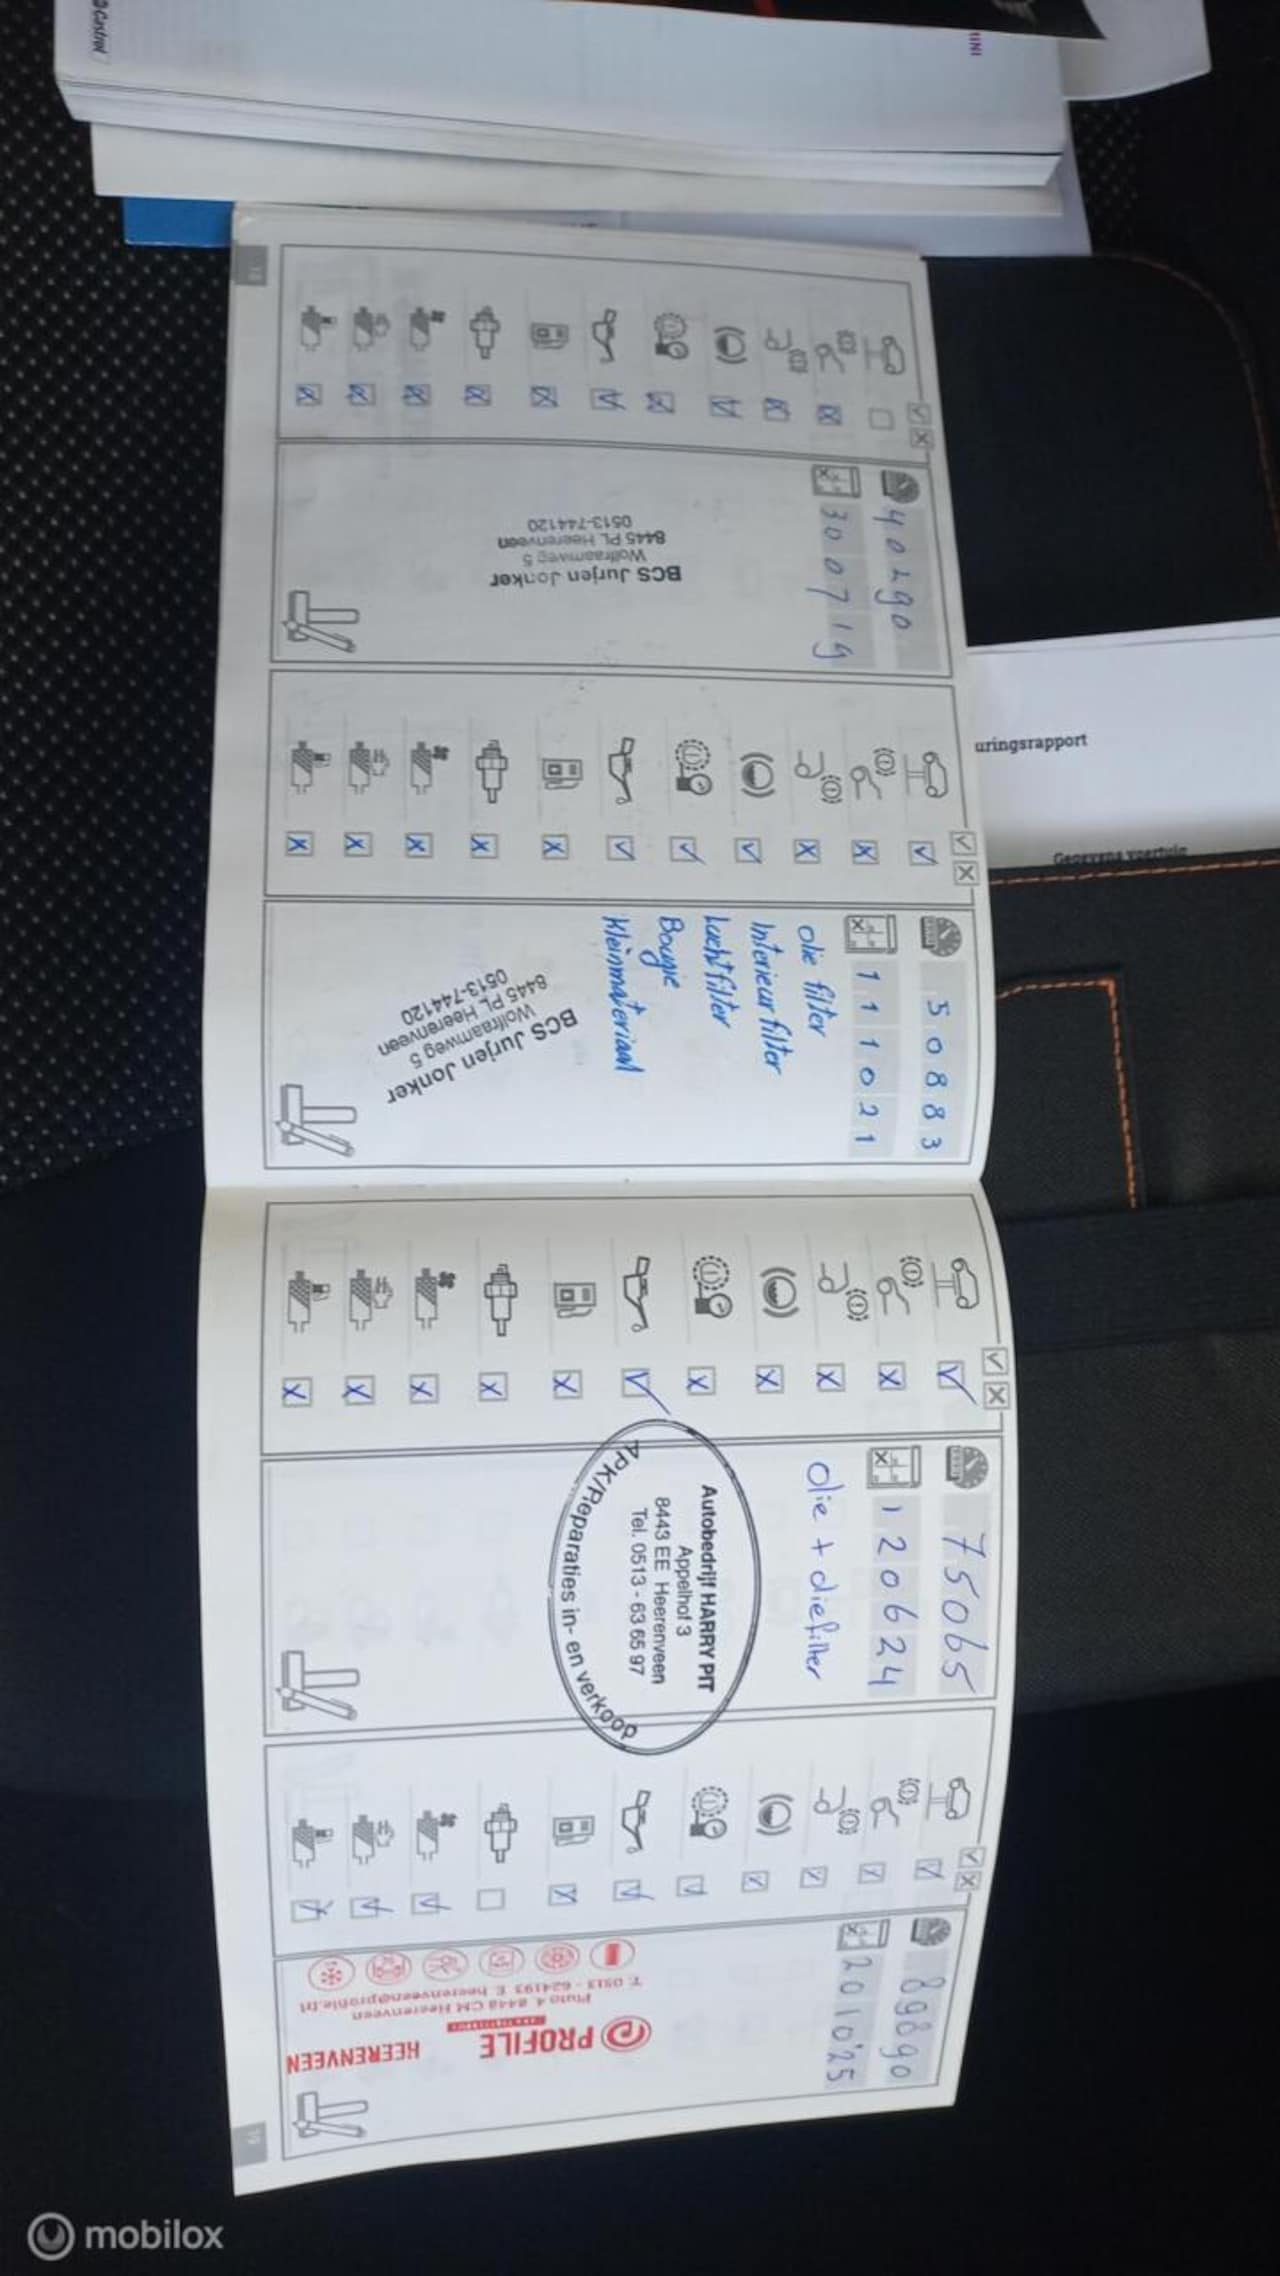 Castrol
INI
uringsrapport
Gegevens voertuig
18
40290
300719
BCS Jurjen Jonker
Wolfraamweg 5
8445 PL Heerenveen
0513-744120
50883
111021
olie filter
Interieur filter
Luchtfilter
Bougie
Kleinmateriaal
BCS Jurjen Jonker
Wolfraamweg 5
8445 PL Heerenveen
0513-744120
75065
120624
olie + oliefilter
Autobedrijf HARRY PIT
Appelhof 3
8443 EE Heerenveen
Tel. 0513 - 63 65 97
APK/Reparaties in- en verkoop
89890
201025
PROFILE
HEERENVEEN
Pluto 4, 8448 CM Heerenveen
T. 0513 - 624193 E. heerenveen@profile.nl
19
mobilox